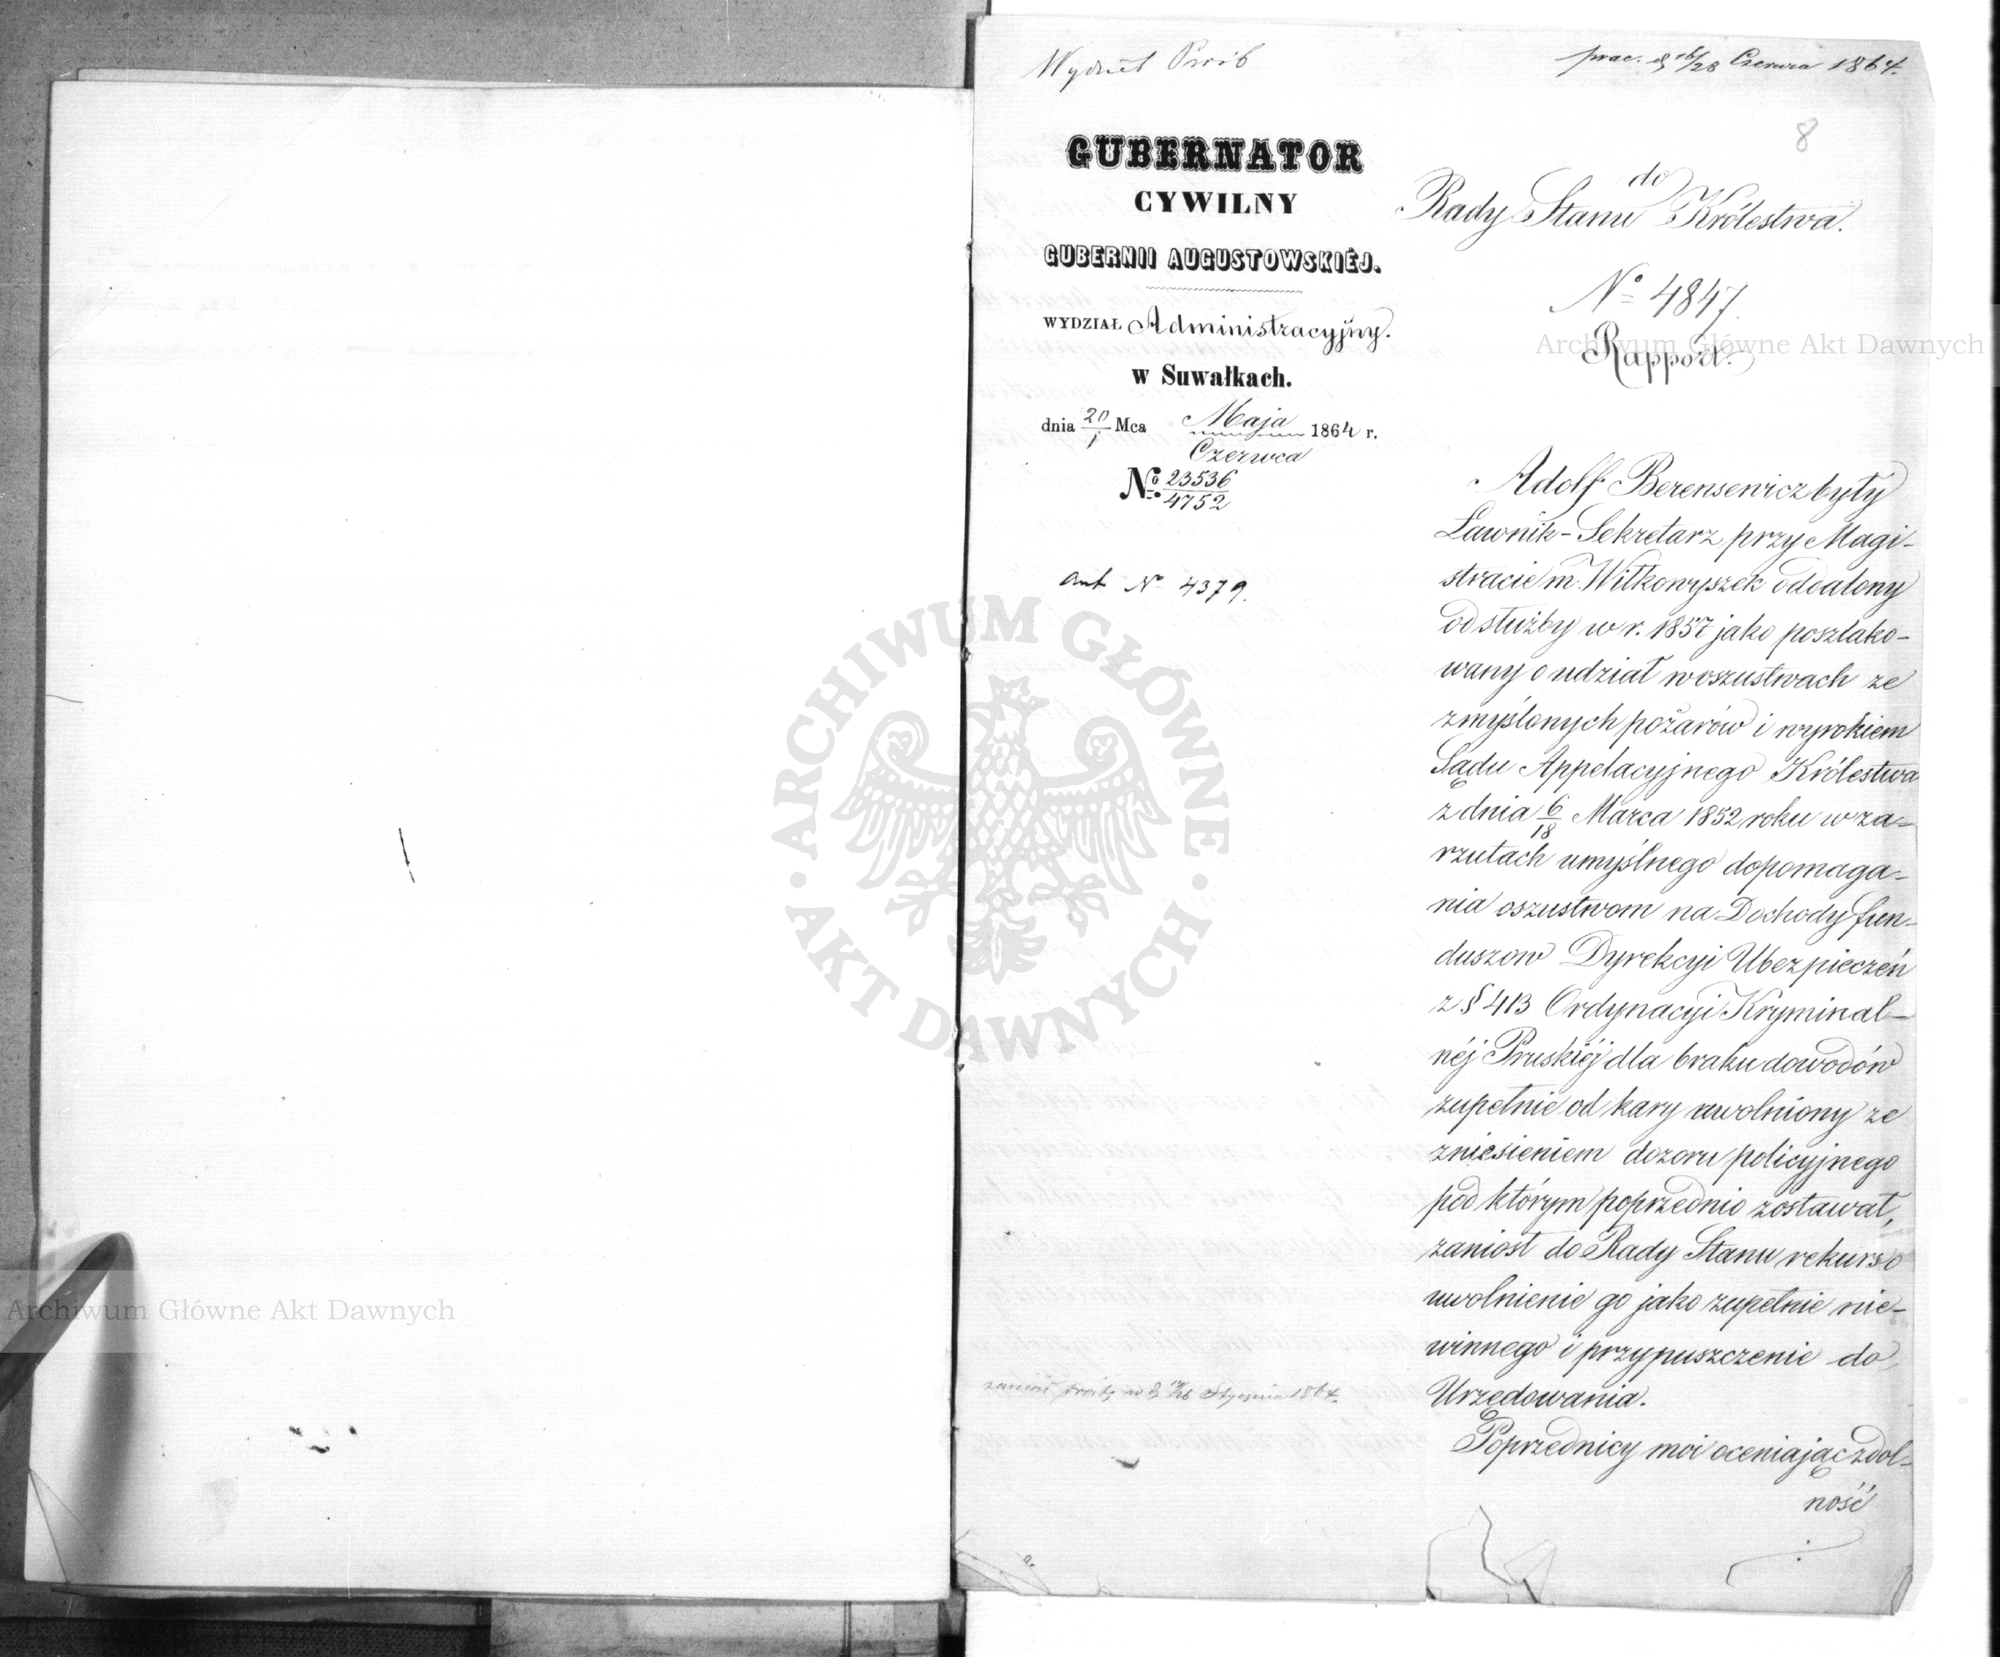 Wydział Próśb
prac. d 16/28 Czerwca 1864.
8
GUBERNATOR
CYWILNY
GUBERNII AUGUSTOWSKIÉJ.
WYDZIAŁ Administracyjny.
w Suwałkach.
dnia 20/1 Mca Maja/Czerwca 1864 r.
No. 23536/4752
ant No 4379.
do
Rady Stanu Królestwa.
No 4847.
Rapport.
Adolf Berensewicz były
Ławnik-Sekretarz przy Magi-
stracie m. Wiłkowyszek oddalony
od służby w r. 1857 jako poszlako-
wany o udział w oszustwach ze
zmyślonych pożarów i wyrokiem
Sądu Appelacyjnego Królestwa
z dnia 6/18 Marca 1852 roku w za-
rzutach umyślnego dopomaga-
nia oszustwom na Dochody fun-
duszow Dyrekcyi Ubezpieczeń
z § 413 Ordynacyi Kryminal-
néj Pruskiéj dla braku dowodów
zupełnie od kary uwolniony ze
zniesieniem dozoru policyjnego
pod którym poprzednio zostawał,
zaniosł do Rady Stanu rekurs o
uwolnienie go jako zupełnie nie-
winnego i przypuszczenie do
Urzędowania.
zaniósł prośbę w d 14/26 Stycznia 1864.
Poprzednicy moi oceniając zdol-
ność
Archiwum Główne Akt Dawnych
ARCHIWUM GŁÓWNE AKT DAWNYCH
Archiwum Główne Akt Dawnych